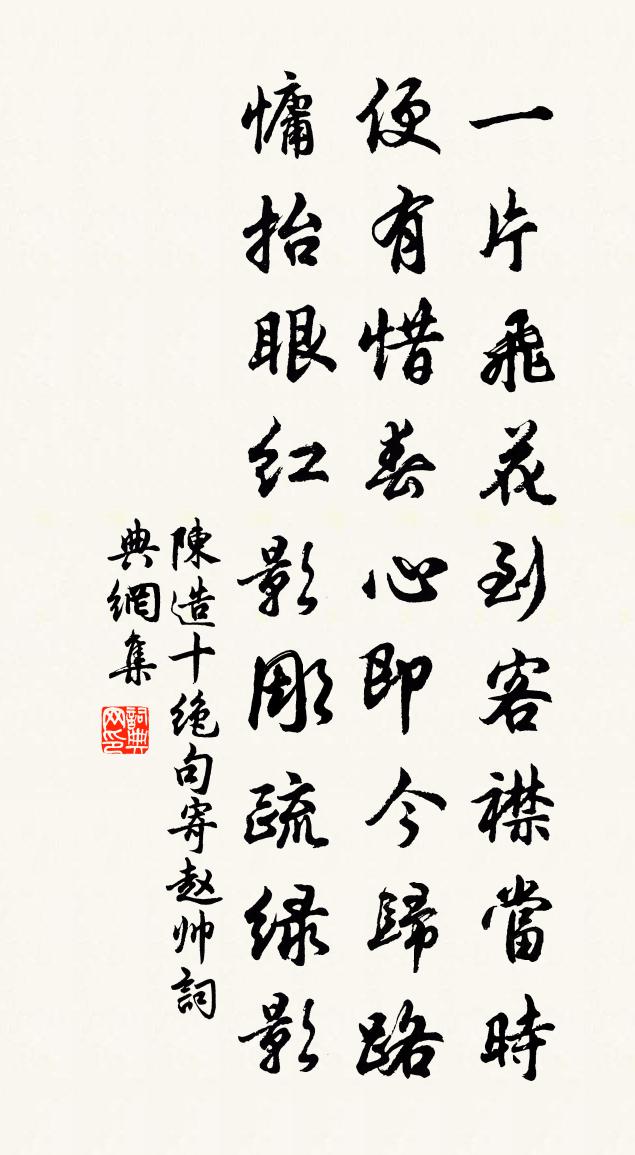 一片飛花到客襟當時
便有惜春心即今歸路
慵抬眼紅影彫疏緑影
陳造十絶句寄赵帅詞
典網集
詞典
网印